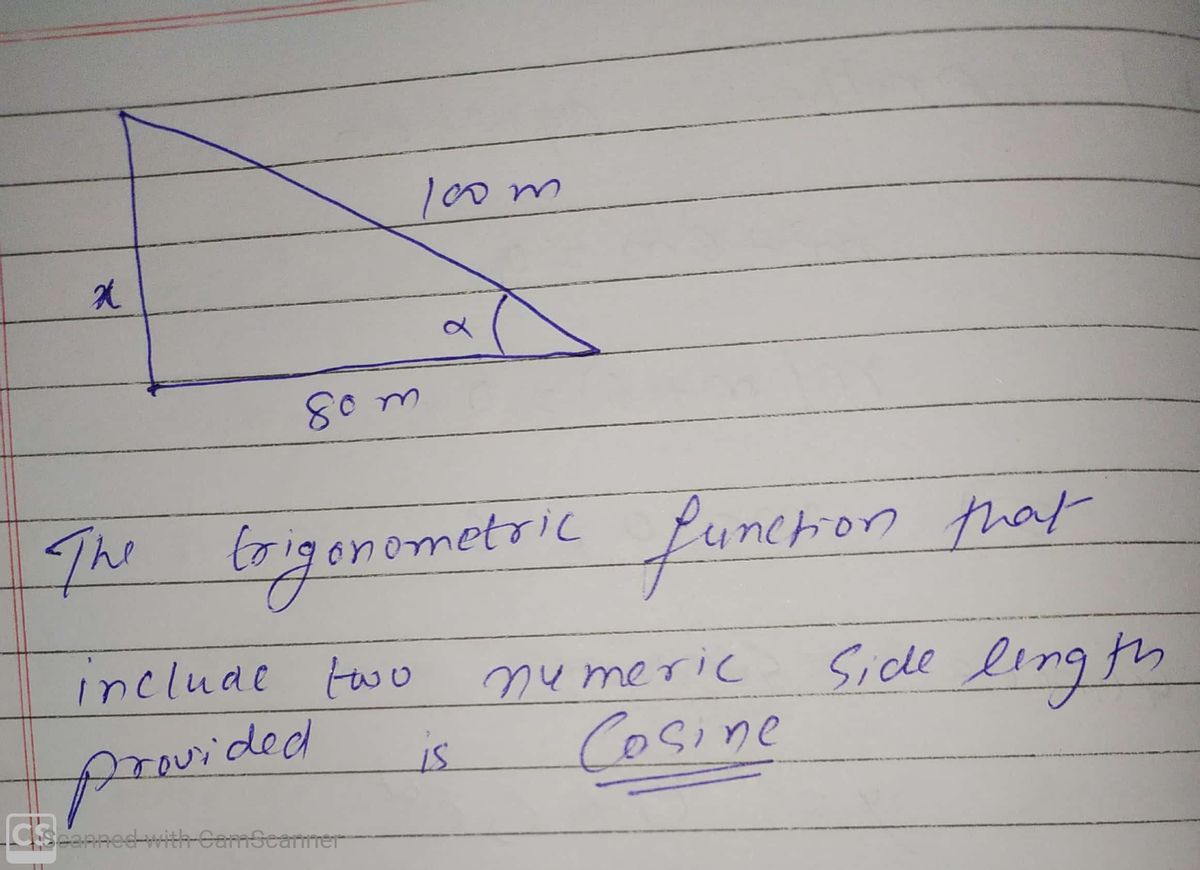 100 m
x
α
80 m
The trigonometric function that
include two numeric side length
provided is Cosine
CS Scanned with CamScanner